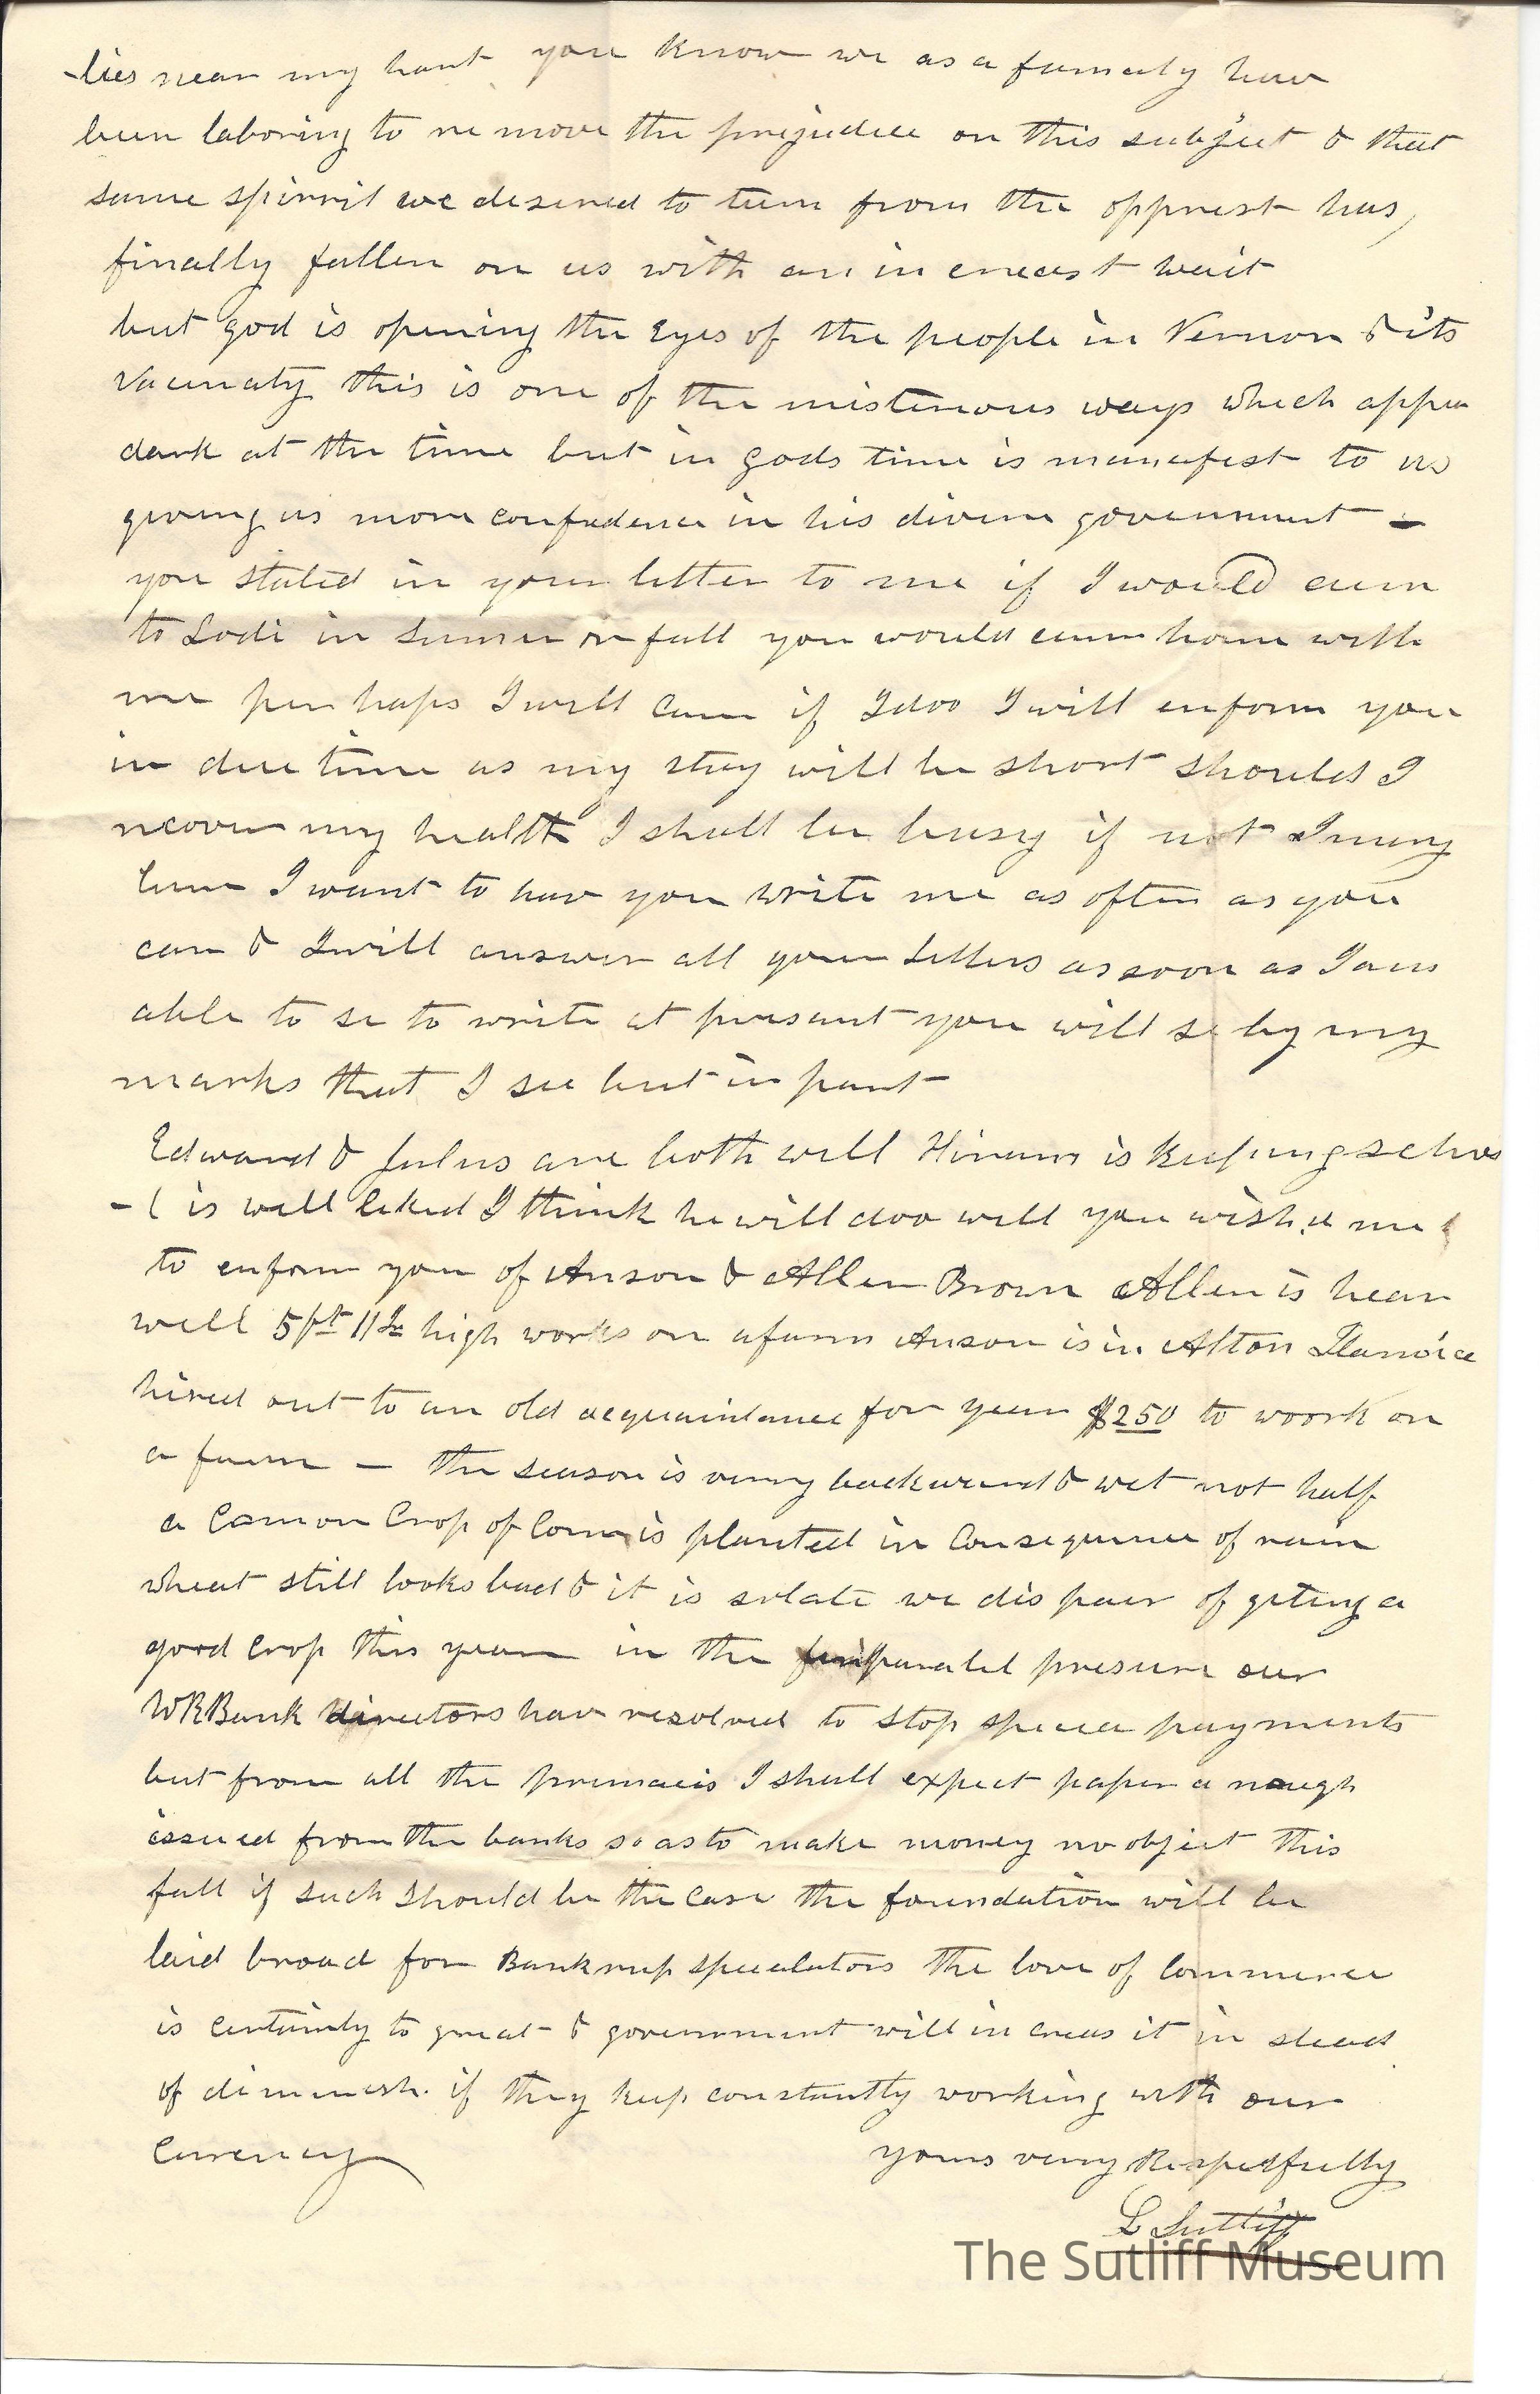 -lies near my hart you know we as a famaly have
been laboring to remove the prejudice on this subject & that
same spirrit we desired to turn from the opprest has,
finally fallen on us with an increast wait
but god is opening the Eyes of the people in Vernon & its
vacinaty this is one of the misterious ways which appear
dark at the time but in gods time is manefest to us
giving us more confadence in his divine government -
you stated in your letter to me if I would cum
to Lodi in Sumer or fall you would cum home with
me perhaps I will cum if I doo I will enform you
in due time as my stay will be short should I
recover my health I shall be busy if not I may
I want to have you write me as often as you
can & I will answer all your Letters as soon as I am
able to se to write at presant you will se by my
marks that I see but in part
Edward & Julius are both well Hiram is keeping schoo
-l is well liked I think he will doo well you wish.d me
to enform you of Anson & Allen Brown Allen is hear
well 5ft 11In high works on a farm Anson is in Alton
hired out to an old acquaintance for year $250 to woork on
a farm - the season is very backward & wet not half
a Comon Crop of Corn is planted in Consequence of rain
wheat still looks bad & it is so late we dispair of geting a
good crop this year in the presure our
WRBank directors have resolved to stop specia payments
but from all the I shall expect paper a nough
issued from the banks so as to make money no object this
fall if such should be the Case the foundation will be
laid broad for Bankrup speculators the love of Commerce
is certainly to great & government will increas it in stead
of diminish. if they keep constantly working with our
Curency yours very Respectfully
L Sutliff
The Sutliff Museum